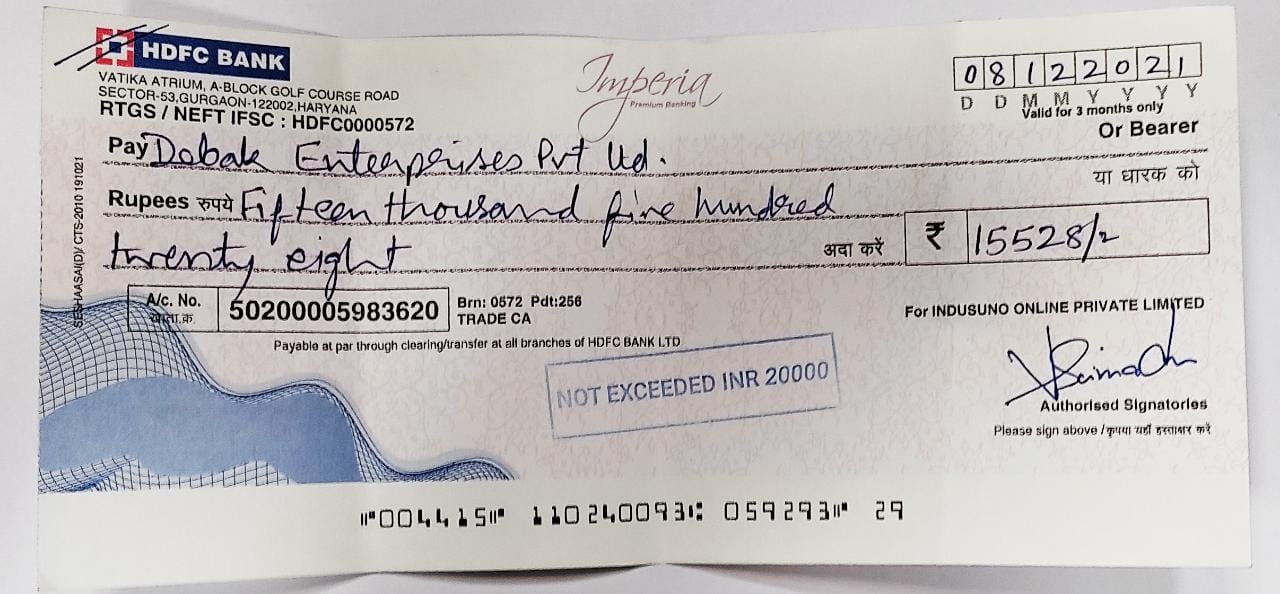 HDFC BANK
VATIKA ATRIUM, A-BLOCK GOLF COURSE ROAD
SECTOR-53,GURGAON-122002,HARYANA
RTGS / NEFT IFSC : HDFC0000572
Imperia
Premium Banking
08122021
D D M M Y Y Y Y
Valid for 3 months only
Or Bearer
Pay Dabak Enterprises Pvt Ltd.
या धारक को
Rupees रुपये Fifteen thousand five hundred
twenty eight अदा करें ₹ 15528/-
A/c. No. 50200005983620 Brn: 0572 Pdt:256
खाता.क्र. TRADE CA
Payable at par through clearing/transfer at all branches of HDFC BANK LTD
NOT EXCEEDED INR 20000
For INDUSUNO ONLINE PRIVATE LIMITED
Authorised Signatories
Please sign above / कृपया यहाँ हस्ताक्षर करें
SESHAASAI(D)/ CTS-2010 191021
⑈004415⑈ 110240093⑆ 059293⑈ 29